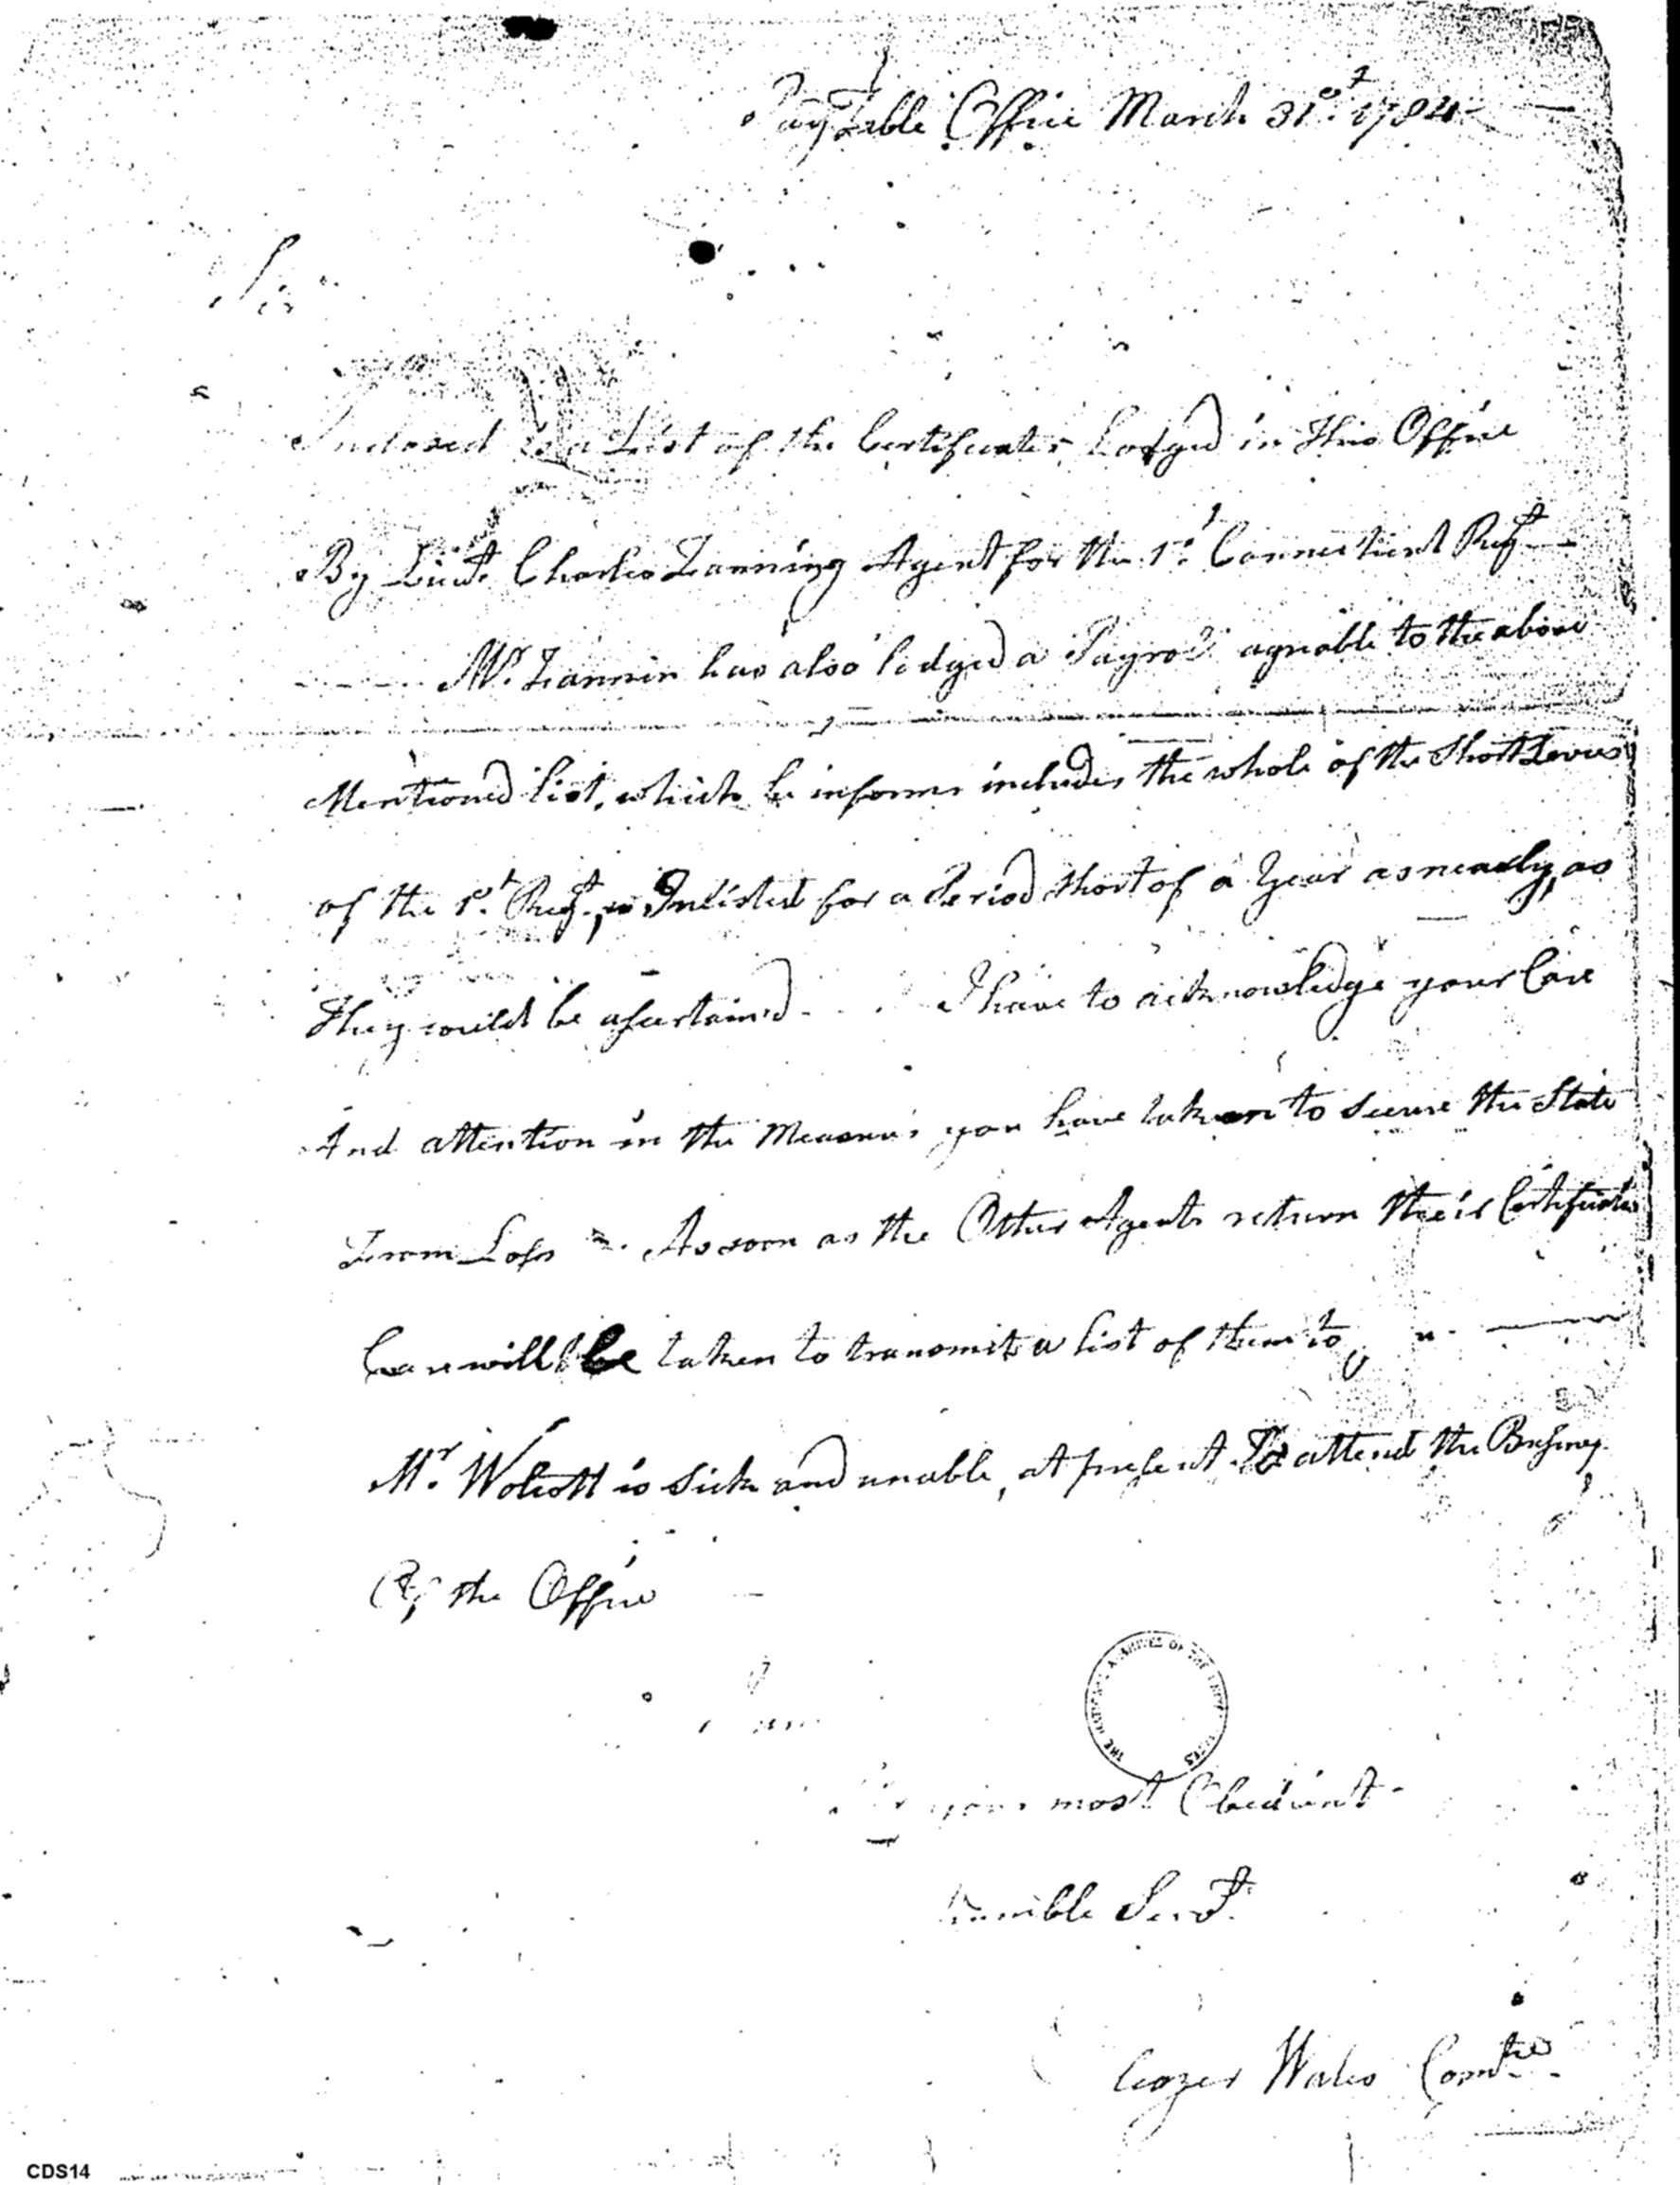 Pay Table Office March 31st. 1784
Sir
Inclosed is a List of the Certificates Lodged in This Office
By Lieut. Charles Fanning Agent for the 1st. Connecticut Regt
Mr. Fannin has also lodged a Payroll agreable to the above
Mentioned list, which he informs includes the whole of the Short Levies
of the 1st. Regt. Inlisted for a Period Short of a Year as nearly, as
They could be assertained. I have to acknowledge your Care
And attention in the Measures you have taken to secure the State
From Loss As soon as the Other Agents return their Certificates
Care will be taken to transmit a list of them to
Mr. Wolcott is Sick and unable, at present To attend the Business
Of the Office
your most Obedient
humble Servt.
Eleazer Wales Comtee
THE NATIONAL ARCHIVES OF THE UNITED STATES
CDS14